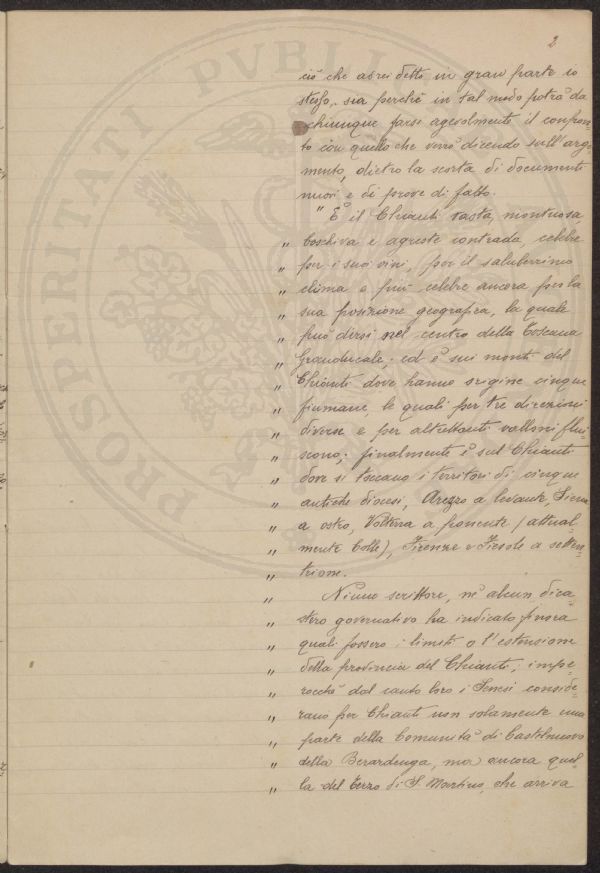 2
ciò che avrei detto in gran parte io
stesso, sia perchè in tal modo potrà da
chiunque farsi agevolmente il confron-
to con quello che verrò dicendo sull'argo-
mento, dietro la scorta di documenti
nuovi e di prove di fatto.
" È il Chianti vasta, montuosa
" boschiva e agreste contrada, celebre
" per i suoi vini, per il saluberrimo
" clima e più celebre ancora per la
" sua posizione geografica, la quale
" può dirsi nel centro della Toscana
" Granducale; ed è sui monti del
" Chianti dove hanno origine cinque
" fiumane, le quali per tre direzioni
" diverse e per altrettanti valloni flui-
" scono; finalmente è sul Chianti
" dove si toccano i territori di cinque
" antiche diocesi, Arezzo a levante, Siena
" a ostro, Volterra a ponente (attual
" mente Colle), Firenze e Fiesole a setten-
" trione.
" Niuno scrittore, nè alcun dica-
" stero governativo ha indicato finora
" quali fossero i limiti o l'estensione
" della provincia del Chianti; impe-
" rocchè dal canto loro i Senesi conside-
" rano per Chianti non solamente una
" parte della Comunità di Castelnuovo
" della Berardenga, ma ancora quel-
" la del Terzo di S. Martino, che arriva
PROSPERITATI PVBLI